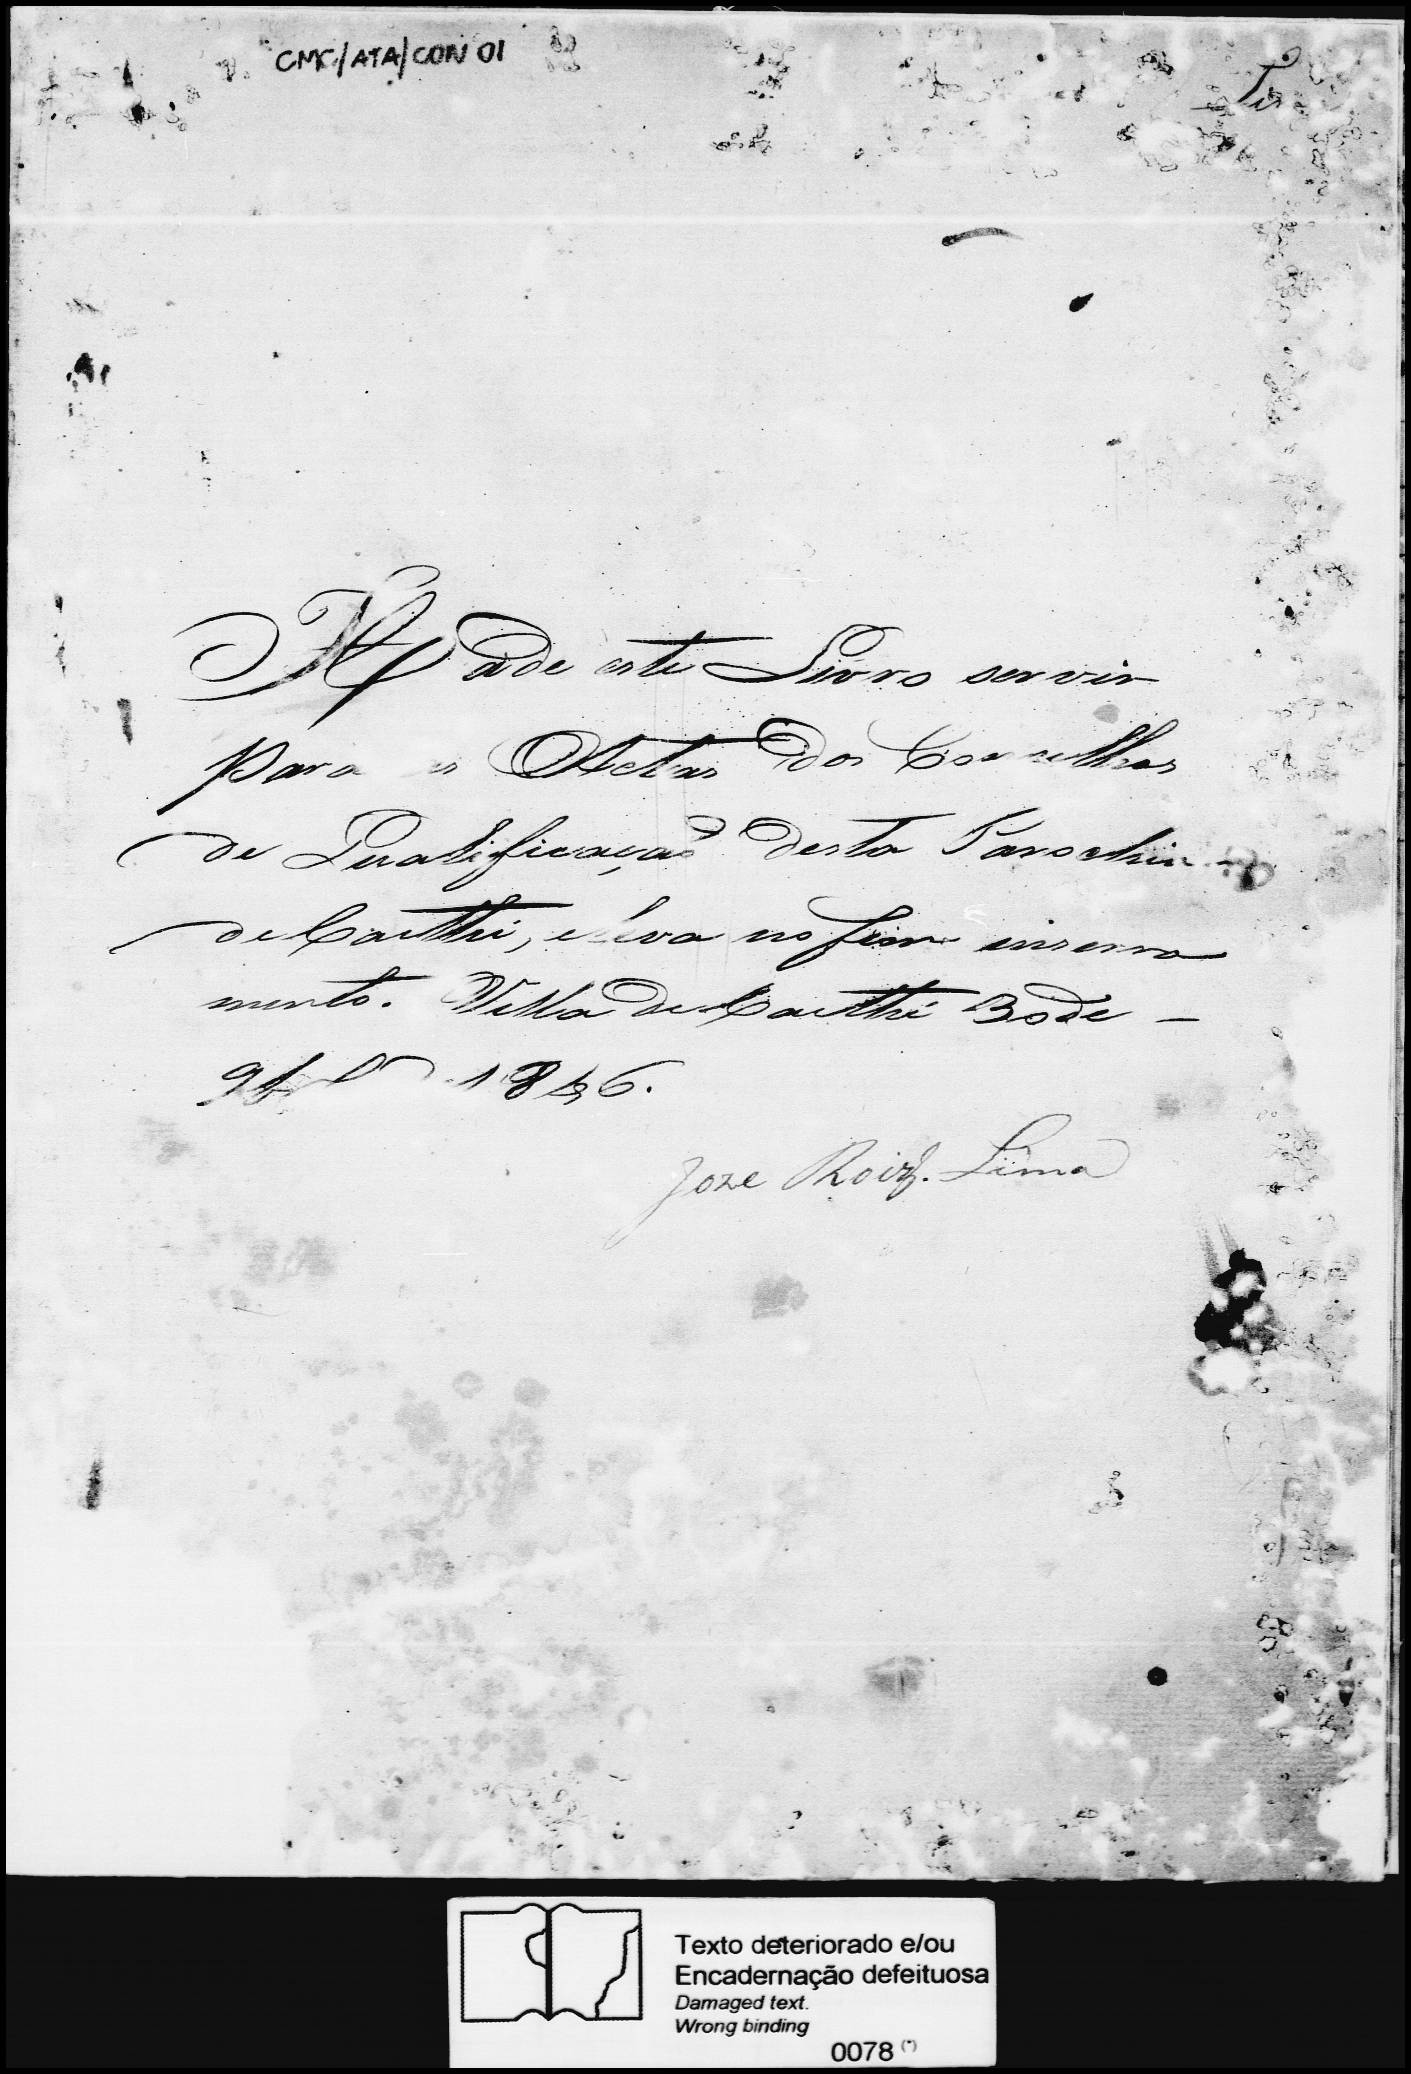 CMC/ATA/CON 01
Hade este Livro servir
para as Actas dos Conselhos
de Qualificação desta Parochia
de Caethé, e leva no fim inserra
mento. Villa de Caethé 30 de
9br.o 1846.
Joze Roiz. Lima
Texto deteriorado e/ou
Encadernação defeituosa
Damaged text.
Wrong binding
0078 (*)